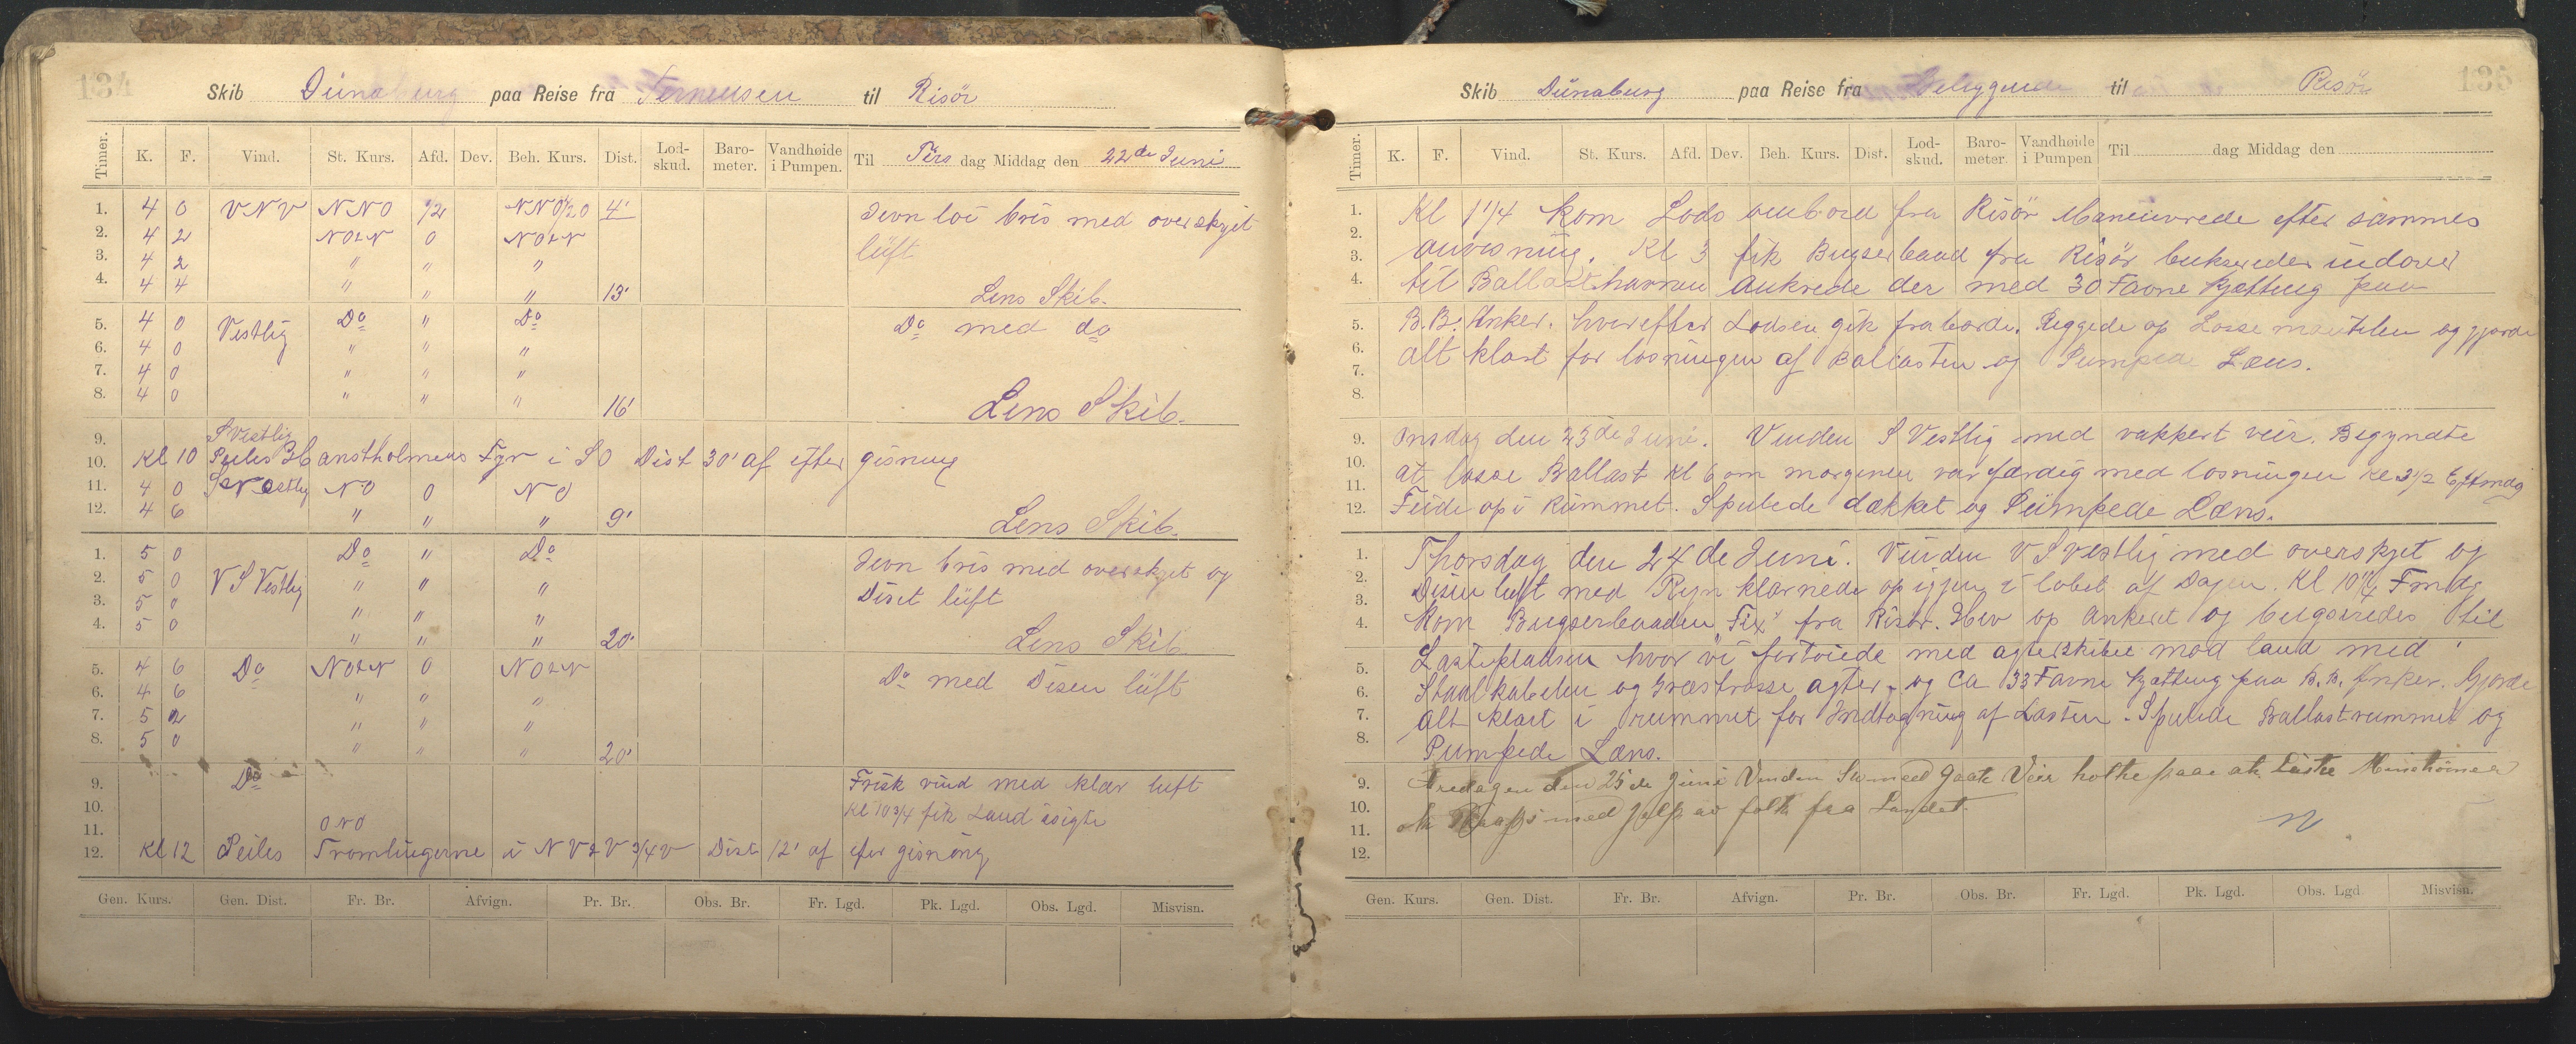 134
Skib Dünaburg paa Reise fra Terneusen til Risör
Timer. K. F. Vind. St. Kurs. Afd. Dev. Beh. Kurs. Dist. Lod-skud. Baro-meter. Vandhøide i Pumpen. Til Tirs dag Middag den 22de Juni
1. 4 0 VNV NNO 1/2 NNO1/2O 4' Jevn loi bris med overskyet
2. 4 2 NOtN 0 NOtN lüft
3. 4 2 " " "
4. 4 4 " " " 13' Lens Skib.
5. 4 0 Vestlig Do " Do Do med do
6. 4 0 " " "
7. 4 0 " " "
8. 4 0 " " " 16' Lens Skib.
9. S Vestlig
10. Kl 10 Peiles Hanstholmens Fyr i SO Dist 30' af efter gisning
11. 4 0 NO 0 NO
12. 4 6 " " " 9' Lens Skib.
1. 5 0 Do " Do Jevn bris med overskyet og
2. 5 0 V S Vestlig " " " Diset lüft
3. 5 0 " " "
4. 5 0 " " " 20' Lens Skib
5. 4 6 Do NOtN 0 NOtN Do med Disen lüft
6. 4 6 " " "
7. 5 2 " " "
8. 5 0 " " " 20'
9. Do Frisk vind med klar luft
10. Kl 10 3/4 fik Land isigte
11. ONO
12. Kl 12 Peiles Tromlingerne i NVtV 3/4 V Dist 12' af efter gisning
Gen. Kurs. Gen. Dist. Fr. Br. Afvign. Pr. Br. Obs. Br. Fr. Lgd. Pk. Lgd. Obs. Lgd. Misvisn.
135
Skib Dünaburg paa Reise fra Beliggende til Risör
Timer. K. F. Vind. St. Kurs. Afd. Dev. Beh. Kurs. Dist. Lod-skud. Baro-meter Vandhøide i Pumpen Til dag Middag den
1. Kl 1 1/4 kom Lods ombord fra Risör Maneuvrede efter sammes
2. anvisning. Kl 3 fik Bugserbaad fra Risör bukseredes indover
3.
4. til Ballasthavnen Ankrede der med 30 Favne Kjætting paa
5. B.B. Anker. hvorefter Lodsen gik fraborde. Riggede op Losse og gjorde
6. alt klart for losningen af Ballasten og Pumpea Læns.
7.
8.
9. Onsdag den 23de Juni. Vinden S Vestlig med vakkert veir. Begyndte
10. at losse Ballast Kl 6 om morgenen var færdig med losningen Kl 3 1/2 Eftmdg
11.
12. Feide op i Rümmet. Spulede dækket og Pümpede Læns.
1. Thorsdag den 24de Juni. Vinden V S Vestlig med overskyet og
2. Disen luft med Regn klarnede op igjen i løbet af Dagen. Kl 10 1/4 Fmdg
3.
4. kom Bugserbaaden "Fix" fra Risör. Hev op Ankeret og bugseredes til
5. Lastepladsen hvor vi fortøiede med agterskibet mod land med
6. Staalkabelen og Græstrosse agter, og Ca 33 Favne Kjætting paa B.B. Anker. Gjorde
7. alt klart i rummet for Indtagning af Lasten. Spulede Ballastrummet og
8. Pumpede Læns.
9. Fredagen den 25de Juni Vinden med Gaat Veir holt paa at Laste
10. ok Props med jælp av folk fra Landet.
11.
12.
Gen. Kurs. Gen. Dist. Fr. Br. Afvign. Pr. Br. Obs. Br. Fr. Lgd. Pk. Lgd. Obs. Lgd Misvisn.